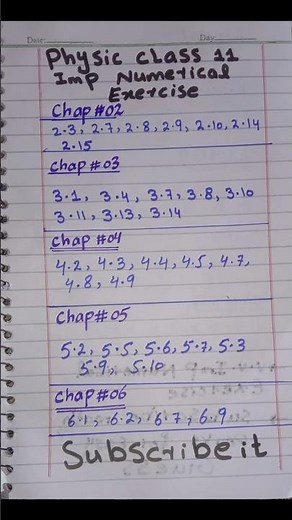 Date: Day:
Physic class 11
Imp Numerical
Exercise
Chap #02
2.3, 2.7, 2.8, 2.9, 2.10, 2.14
2.15
Chap #03
3.1, 3.4, 3.7, 3.8, 3.10
3.11, 3.13, 3.14
Chap #04
4.2, 4.3, 4.4, 4.5, 4.7,
4.8, 4.9
Chap #05
5.2, 5.5, 5.6, 5.7, 5.3
5.9, 5.10
Chap #06
6.1, 6.2, 6.7, 6.9
Subscribe it